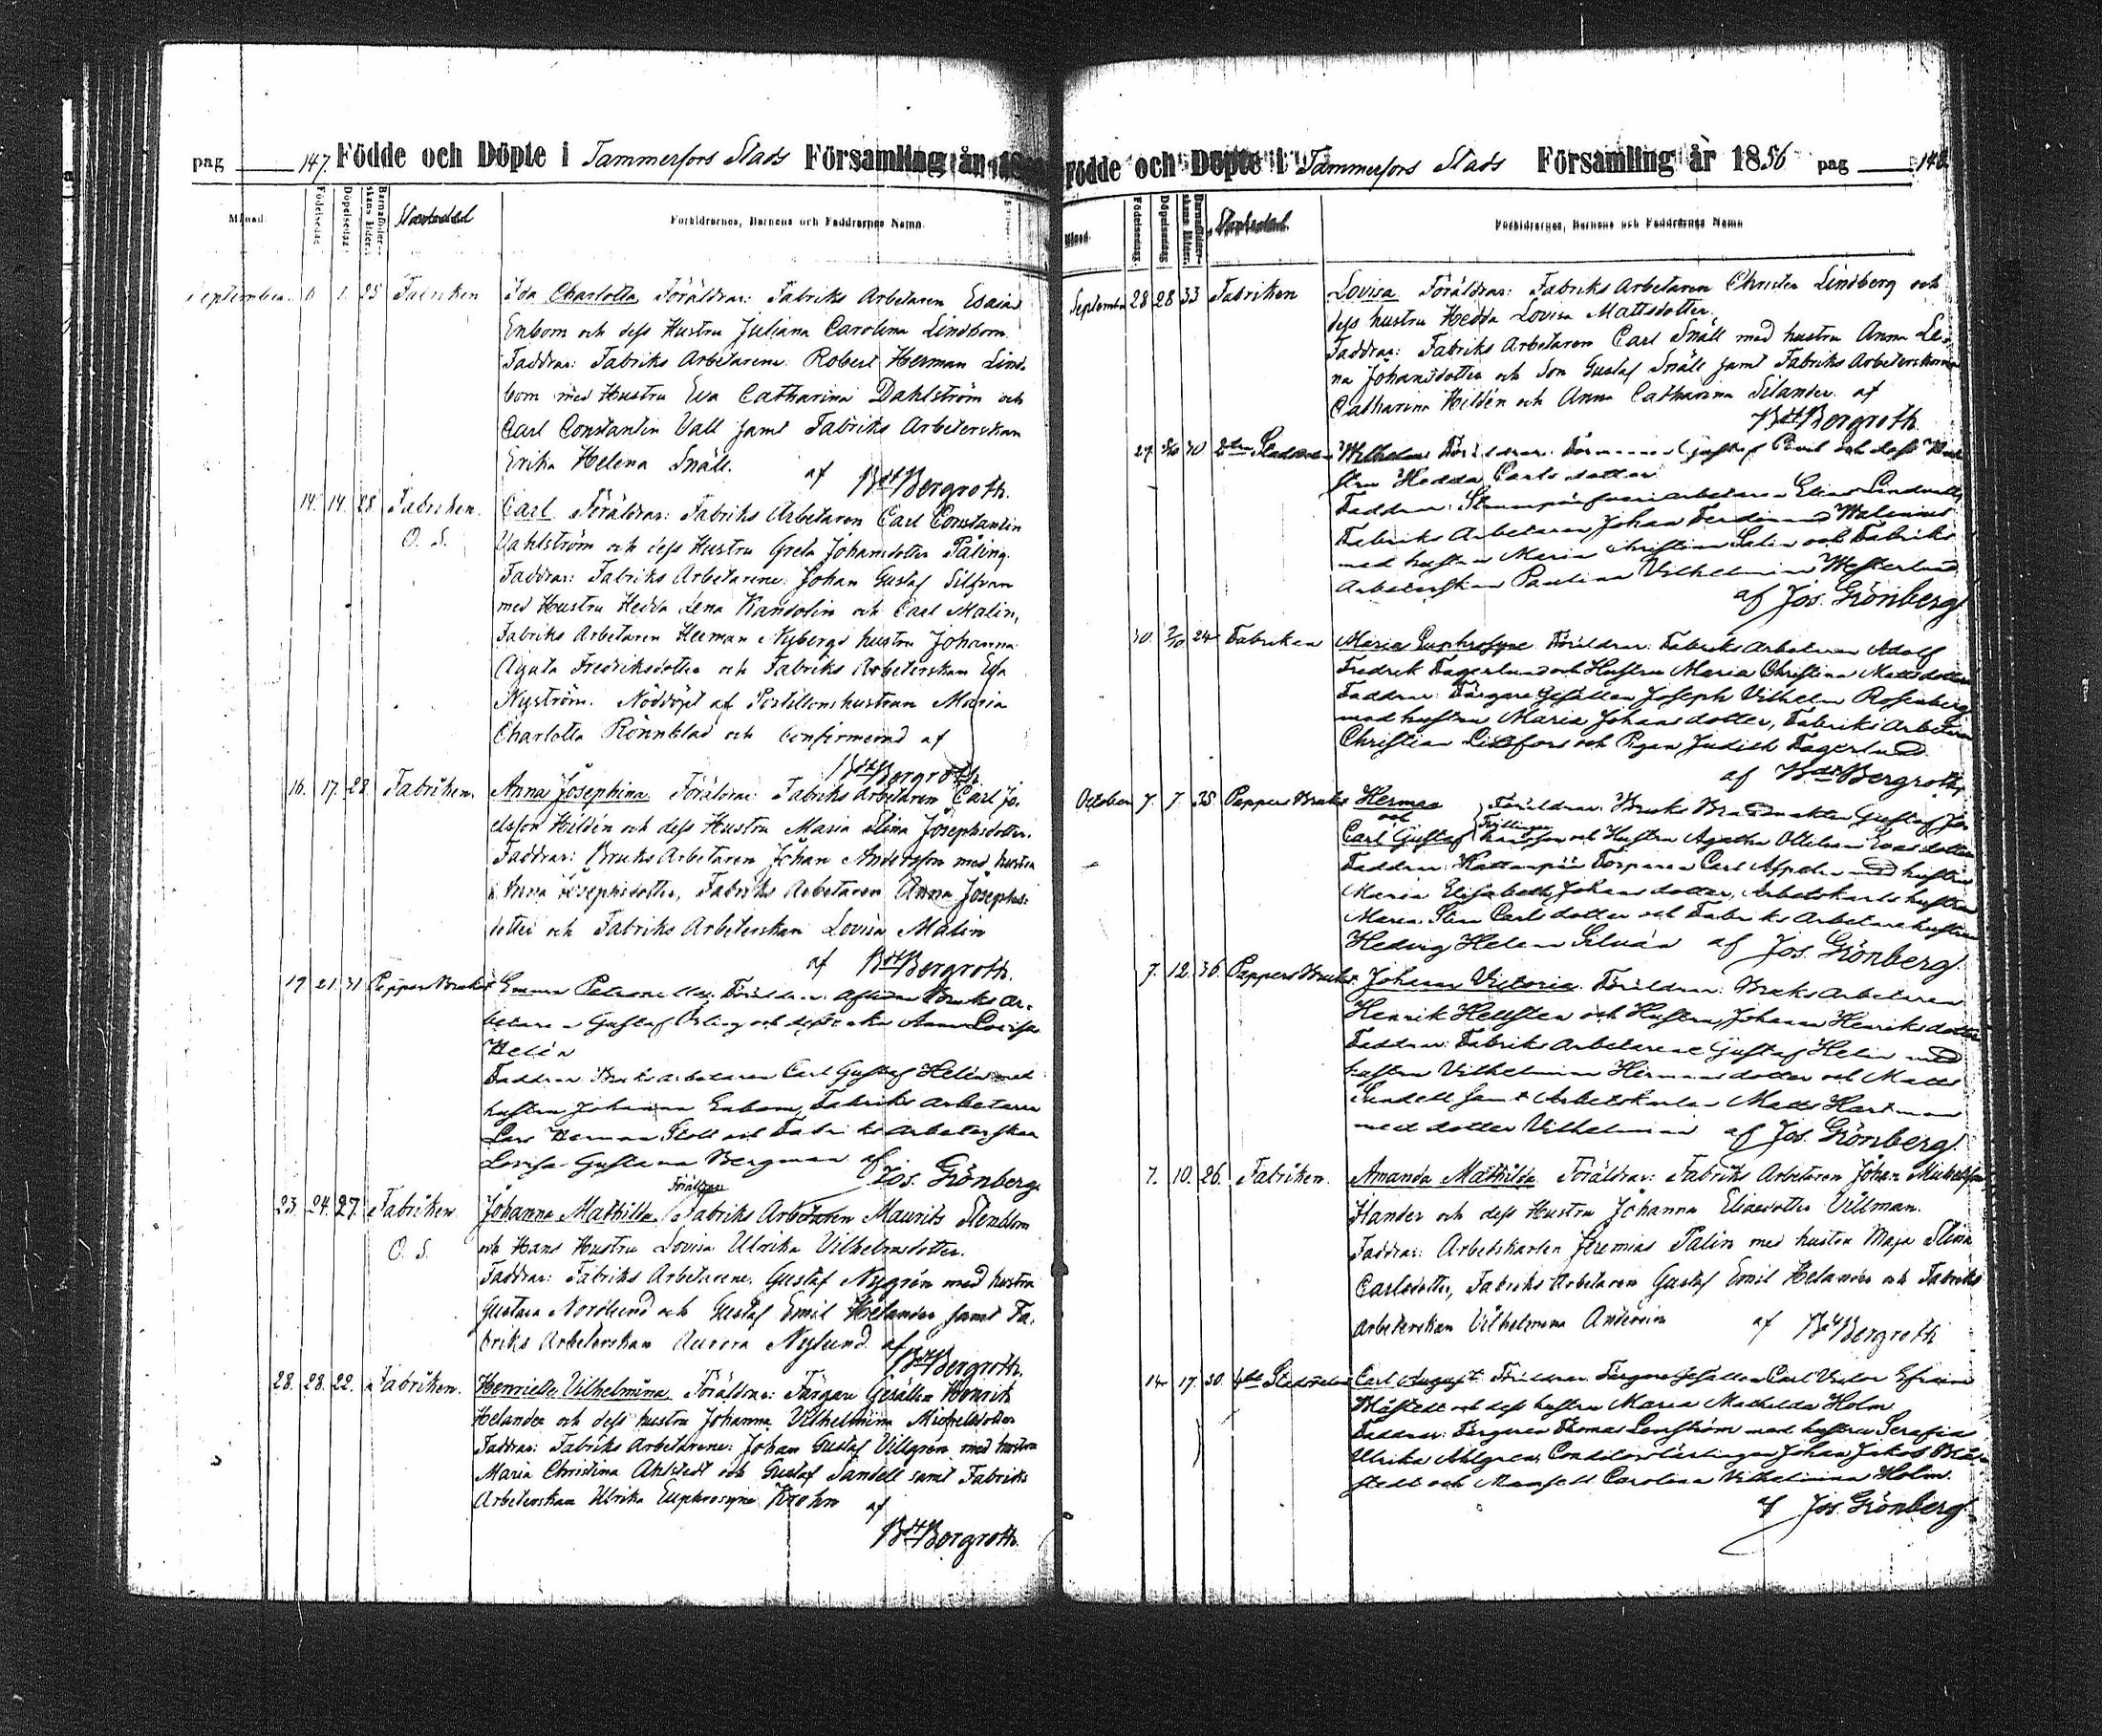 pag 147. Födde och Döpte i Tammerfors Stads Församling år
Månad. Födelsedag. Döpelsedag. Barnaföder-skans ålder. Föräldrarnes, Barnens och Faddrarnes Namn.
September 25 Fabriken Ida Charlotta Föräldrar: Fabriks Arbetaren Esaias
Enbom och dess Hustru Juliana Carolina Lindbom
Faddrar: Fabriks Arbetarene Robert Herman Lind-
bom med Hustru Eva Catharina Dahlström och
Carl Constantin Vall samt Fabriks Arbeterskan
Erika Helena Snäll. af
Bdt Bergroth.
14. 14. 28 Fabriken. Carl Föräldrar: Fabriks Arbetaren Carl Constantin
O. S. Vahlström och dess Hustru Greta Johansdotter Påling.
Faddrar: Fabriks Arbetarene: Johan Gustaf Silfvan
med Hustru Hedda Lena Kandolin och Carl Malin,
Fabriks Arbetaren Herman Nybergs hustru Johanna
Agata Fredriksdotter och Fabriks Arbeterskan Eva
Nyström. Nöddöpt af Postillonshustrun Maria
Charlotta Rönnblad och Confirmerad af
Bdt Bergroth.
16. 17. 28. Fabriken. Anna Josephina. Föräldrar: Fabriks Arbetaren Carl Jo-
elsson Hildén och dess Hustru Maria Stina Josephsdotter.
Faddrar: Bruks Arbetaren Johan Andersson med hustru
Anna Josephsdotter, Fabriks Arbetaren Anna Josephs-
dotter och Fabriks Arbeterskan Lovisa Malin
af Bdt Bergroth.
19 21 31 Pappers Bruket Emma Petronella. Föräldrar: Bruks Ar-
betaren Gustaf Östing och Anna Lovisa
Helin
Faddrar: Bruks arbetaren Carl Gustaf Helin med
hustru Johanna Enbom, Fabriks Arbetaren
Lars Herman Stoll och Fabriks Arbeterskan
Lovisa Gustava Bergman af
Jos. Grönberg
Föräldrar
23. 24. 27. Fabriken Johanna Mathilda, Fabriks Arbetaren Maurits Stenblom
O. S. och Hans Hustru Lovisa Ulrika Vilhelmsdotter.
Faddrar: Fabriks Arbetarene: Gustaf Nygrén med hustru
Gustava Nordlund och Gustaf Emil Helander samt Fa-
briks Arbeterskan Aurora Nylund. af
Bdt Bergroth.
28. 28. 22. Fabriken. Henriette Vilhelmina. Föräldrar: Färgare Gesällen Henrik
Helander och dess hustru Johanna Vilhelmina Michelsdotter
Faddrar: Fabriks Arbetarene: Johan Gustaf Villgren med hustru
Maria Christina Ahlstedt och Gustaf Sandell samt Fabriks
Arbeterskan Ulrika Euphrosyne Krohn af
Bdt Bergroth.
Födde och Döpte i Tammerfors Stads Församling år 1856 pag 148
Månad. Födelsedag. Döpelsedag. Barnaföder-skans ålder. Föräldrarnes, Barnens och Faddrarnes Namn
September 28 28 33 Fabriken Lovisa Föräldrar: Fabriks Arbetaren Christer Lindberg och
dess hustru Hedda Lovisa Mattsdotter.
Faddrar: Fabriks Arbetaren Carl Snäll med hustru Anna Le-
na Johansdotter och Son Gustaf Snäll samt Fabriks Arbeterskorna
Catharina Hildén och Anna Catharina Silander. af
Bdt Bergroth
29 30 Stadsdelen Wilhelm Föräldrar: Gustaf och dess Hu-
stru Hedda Carlsdotter
Faddrar: Elias Lindvall,
Fabriks Arbetaren Johan Ferdinand Walenius
med hustru Maria Christina Salin och Fabriks
Arbeterskan Paulina Vilhelmina Westerlund
af Jos. Grönberg
30. 2/10 24 Fabriken Maria Euphrosyne. Föräldrar: Fabriks Arbetaren Adolf
Fredrik Fagerlund och Hustru Maria Christina Mattsdotter
Faddrar: Färgare Gesällen Joseph Vilhelm Rosenberg
med hustru Maria Johansdotter, Fabriks Arbetaren
Christian Lindfors och Pigan Judith Fagerlund.
af Bdt Bergroth.
October 7. 7. 35 Pappers Bruket Herman Föräldrar: Bruks Brandvakten Gustaf Jo-
och Tvillingar
Carl Gustaf hansson och Hustru Agatha Ottiliana Evasdotter
Faddrar: Torparen Carl Appelin med hustru
Maria Elisabeth Johansdotter, Arbetskarls hustrun
Maria Stina Carlsdotter och Fabriks Arbetare hustrun
Hedvig Helena Silvan af Jos. Grönberg.
7. 12. 36. Pappers Bruket. Johanna Victoria. Föräldrar: Bruks Arbetaren
Henrik Hellsten och Hustru Johanna Henriksdotter
Faddrar: Fabriks Arbetarene Gustaf Helin med
hustru Vilhelmina Hermansdotter och Matts
Sandell samt Arbetskarlen Matts Hartman
med dotter Vilhelmina af Jos. Grönberg.
7. 10. 26. Fabriken. Amanda Mathilda Föräldrar: Fabriks Arbetaren Johan Michelsson
Ilander och dess Hustru Johanna Eliaedotter Villman.
Faddrar: Arbetskarlen Jeremias Palin med hustru Maja Stina
Carlsdotter, Fabriks Arbetaren Gustaf Emil Helander och Fabriks
Arbeterskan Vilhelmina Andersin af Bdt Bergroth
14 17 30. 4de Stadsdelen Carl August. Föräldrar: Färgare Gesällen Carl Victor Efraim
Blåfieldt och dess hustru Maria Mathilda Holm
Faddrar: Färgaren Thomas Lenström med hustru Serafia
Ulrika Ahlgren, Conditorslärlingen Johan Jakob Blå-
stedt och Mamsell Carolina Vilhelmina Holm.
af Jos. Grönberg.